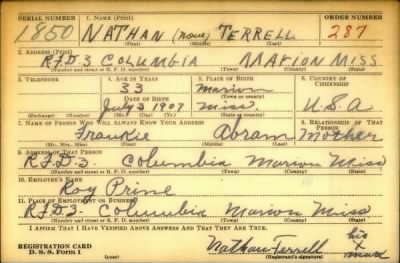 SERIAL NUMBER 1. NAME (Print) ORDER NUMBER
1850 NATHAN (none) TERRELL 287
(First) (Middle) (Last)
2. ADDRESS (Print)
R.F.D.3 COLUMBIA MARION MISS
(Number and street or R. F. D. number) (Town) (County) (State)
3. TELEPHONE 4. AGE IN YEARS 5. PLACE OF BIRTH 6. COUNTRY OF CITIZENSHIP
33 Marion
DATE OF BIRTH (Town or county)
July 3 1907 Miss U.S.A
(Exchange) (Number) (Mo.) (Day) (Yr.) (State or country)
7. NAME OF PERSON WHO WILL ALWAYS KNOW YOUR ADDRESS 8. RELATIONSHIP OF THAT PERSON
Frankie Abram Mother
(Mr., Mrs., Miss) (First) (Middle) (Last)
9. ADDRESS OF THAT PERSON
R.F.D.3. Columbia Marion Miss
(Number and street or R. F. D. number) (Town) (County) (State)
10. EMPLOYER'S NAME
Roy Prine
11. PLACE OF EMPLOYMENT OR BUSINESS
R.F.D3. Columbia Marion Miss
(Number and street or R. F. D. number) (Town) (County) (State)
I AFFIRM THAT I HAVE VERIFIED ABOVE ANSWERS AND THAT THEY ARE TRUE.
REGISTRATION CARD Nathan Terrell his x mark
D. S. S. Form 1 (over) (Registrant's signature)